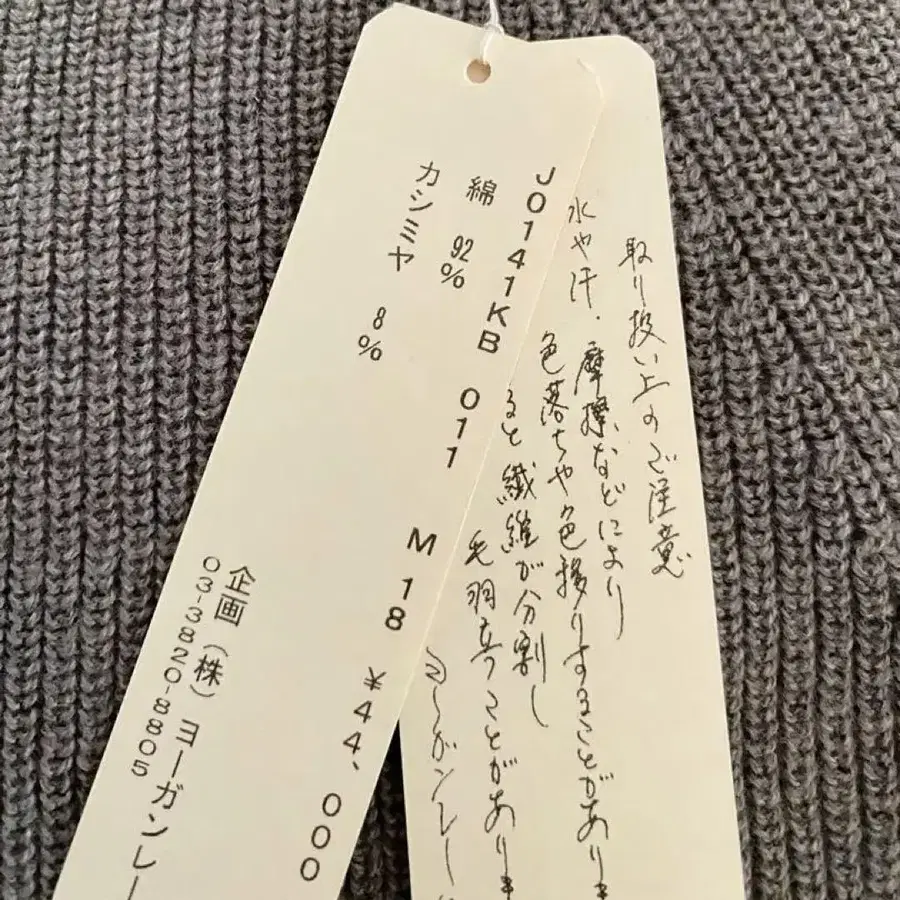 J0141KB 011 M 18 ¥44、000
綿 92%
カシミヤ 8%
企画(株)ヨーガンレー
03-3820-8805
取り扱い上のご注意
水や汗・摩擦などにより
色落ちや色移りすることがありま
ると繊維が分割し
毛羽立つことがありま
ヨーガンレー